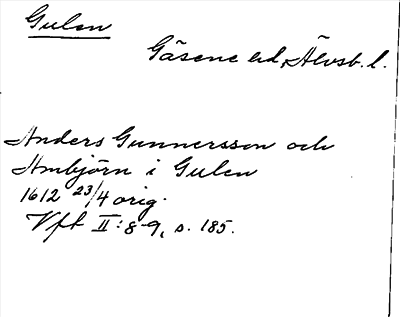 Gulen
Gäsene hd, Älvsb. l.
Anders Gunnersson och
Ambjörn i Gulen
1612 23/4 orig.
Vft II: 8-9, s. 185.